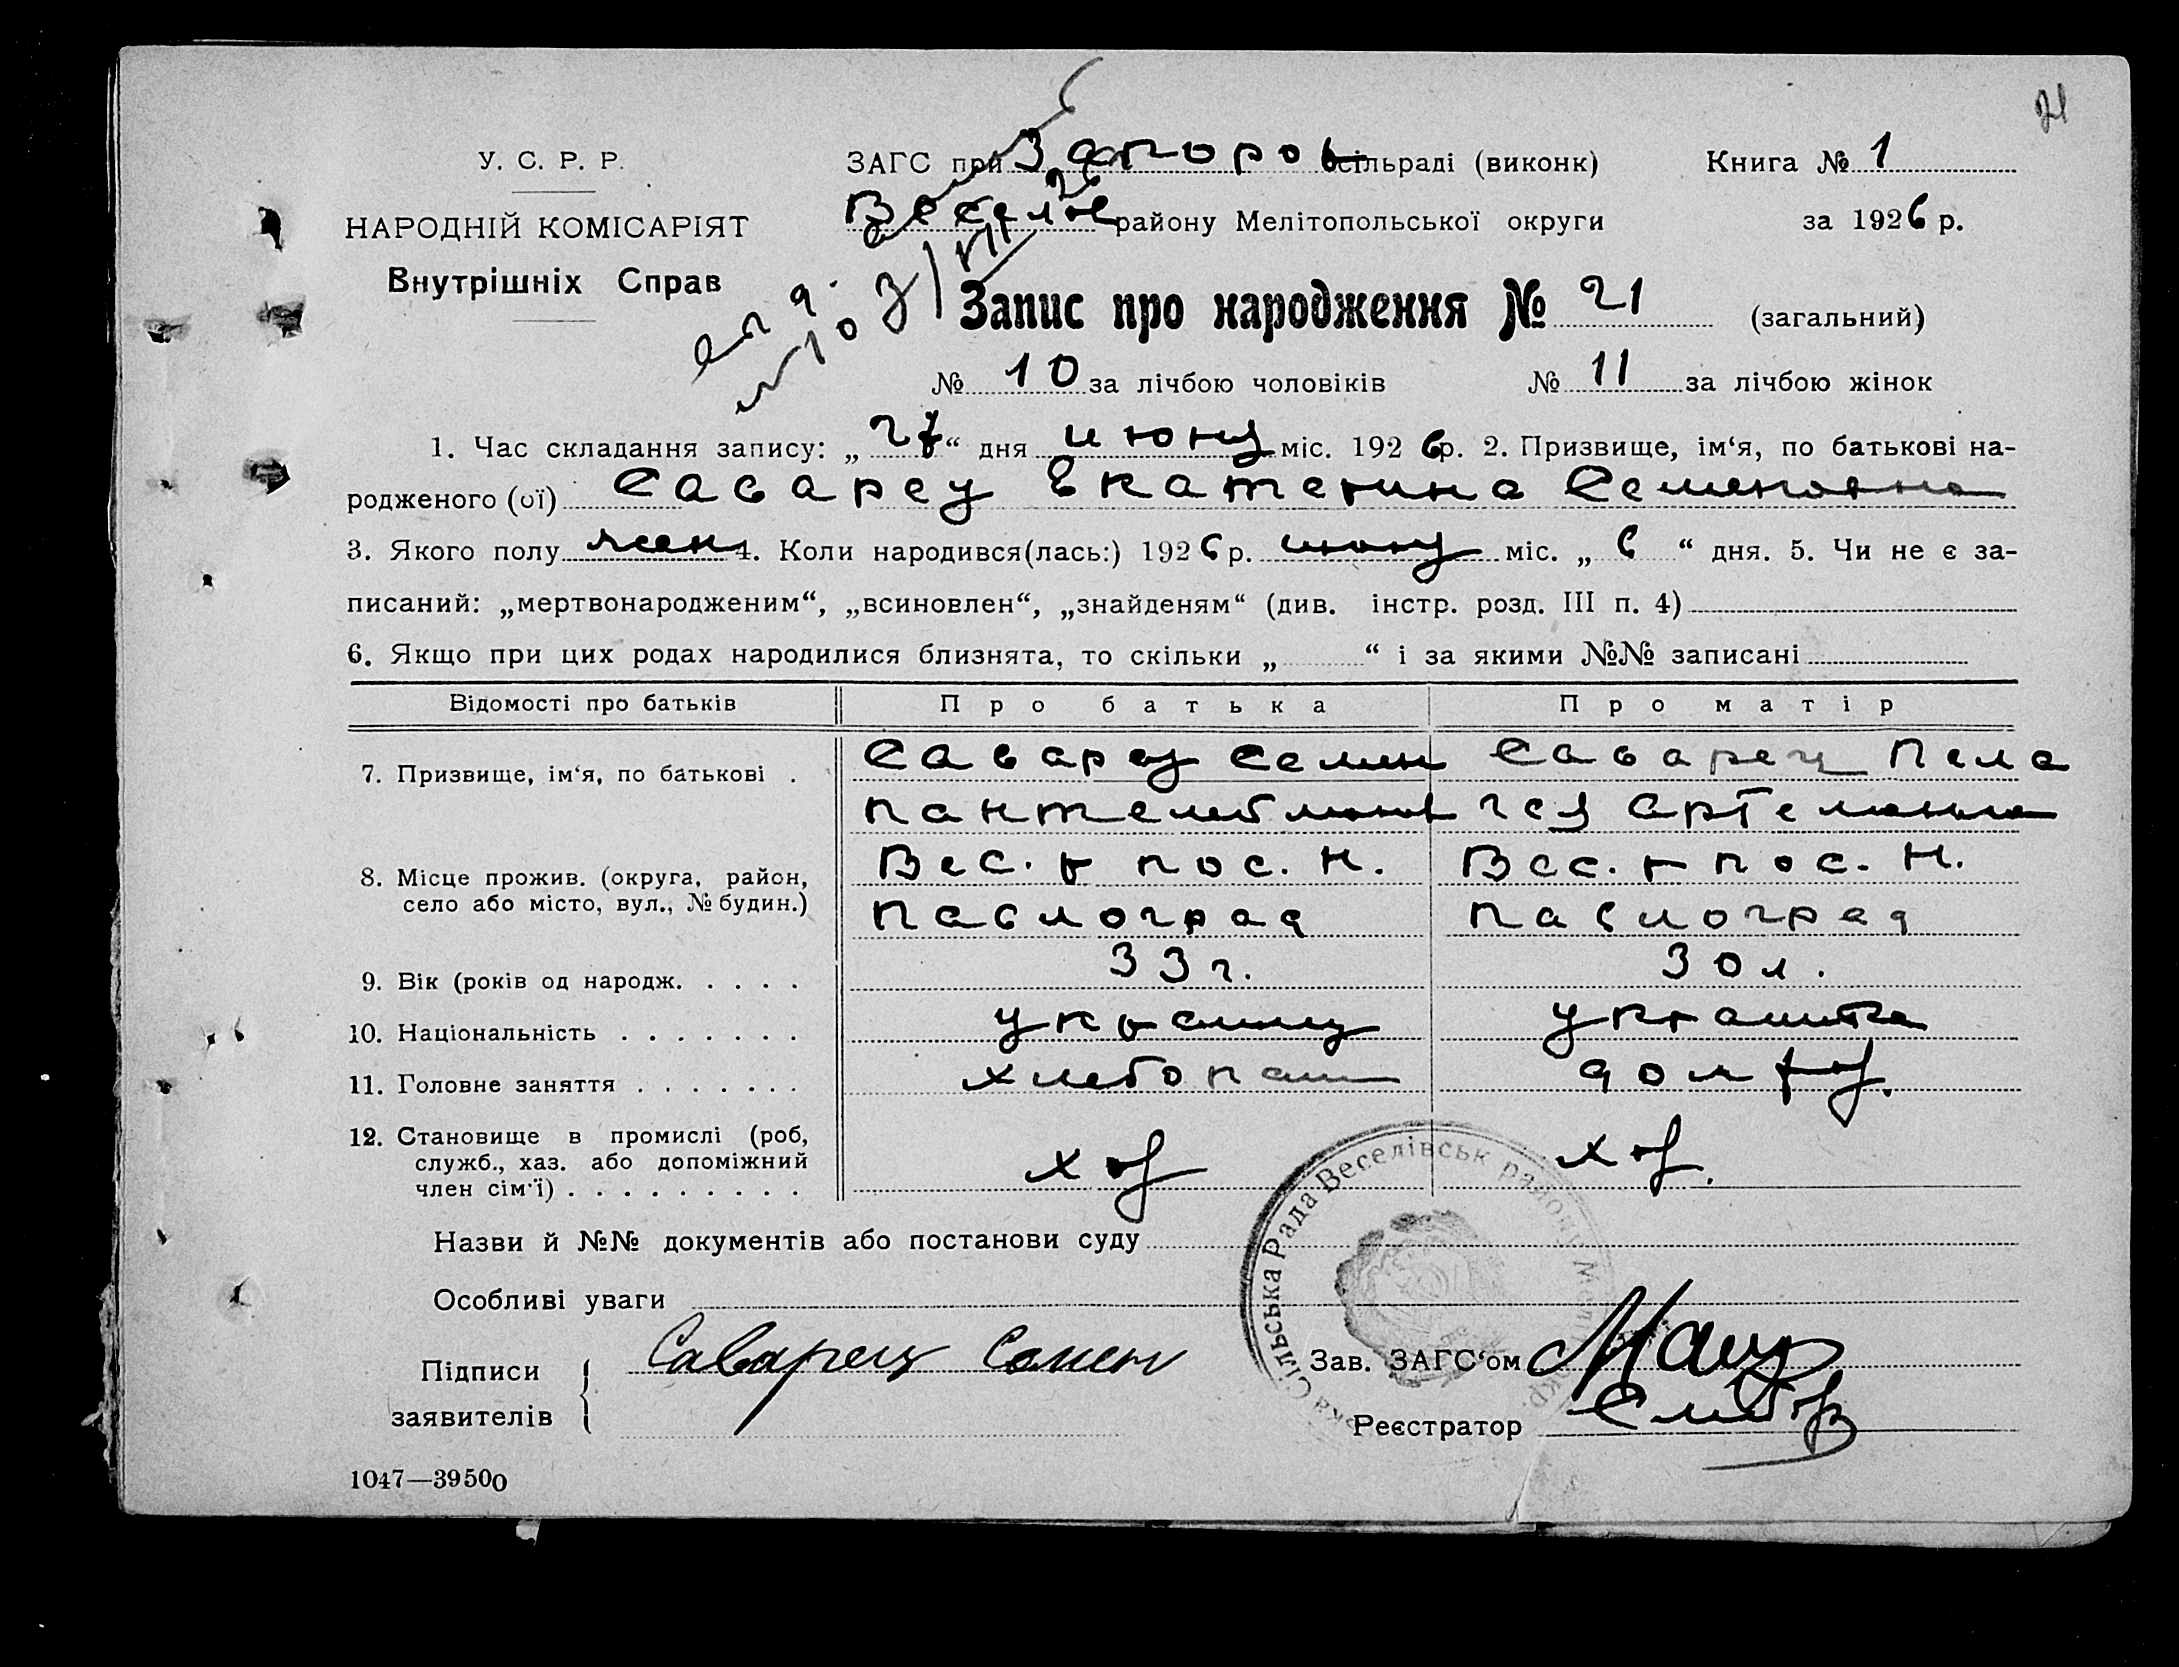 21
У. С. Р. Р.
ЗАГС при Запоров сільраді (виконк)
Книга № 1
НАРОДНІЙ КОМІСАРІЯТ
Весело району Мелітопольської округи
за 1926 р.
Внутрішніх Справ
Запис про народження № 21 (загальний)
№ 10 за лічбою чоловіків
№ 11 за лічбою жінок
1. Час складання запису: „27“ дня июня міс. 1926р. 2. Призвище, ім‘я, по батькові на-
родженого (ої) Саварец Екатерина Семеновна
3. Якого полу жен 4. Коли народився(лась:) 1926 р. июня міс. „6“ дня. 5. Чи не є за-
писаний: „мертвонародженим“, „всиновлен“, „знайденям“ (див. інстр. розд. III п. 4)
6. Якщо при цих родах народилися близнята, то скільки „ “ і за якими №№ записані
Відомості про батьків
Про батька
Про матір
7. Призвище, ім‘я, по батькові .
Саварец Семен
Саварец Пела
гея Артемовна
8. Місце прожив. (округа, район,
село або місто, вул., № будин.)
Вес. р пос. Н.
Павлоград
Вес. р пос. Н.
Павлоград
9. Вік (років од народж. . . . .
33 г.
30 л.
10. Національність . . . . . . .
украинец
украинка
11. Головне заняття . . . . . . .
хлебопаш
дом хоз.
12. Становище в промислі (роб,
служб., хаз. або допоміжний
член сім‘ї) . . . . . . . . .
хоз
хоз.
Назви й №№ документів або постанови суду
Особливі уваги
Підписи
заявителів
Саварец Семен
Зав. ЗАГС‘ом
Реєстратор
ська Сільська Рада Веселівськ району Меліт. окр.
1047—39500